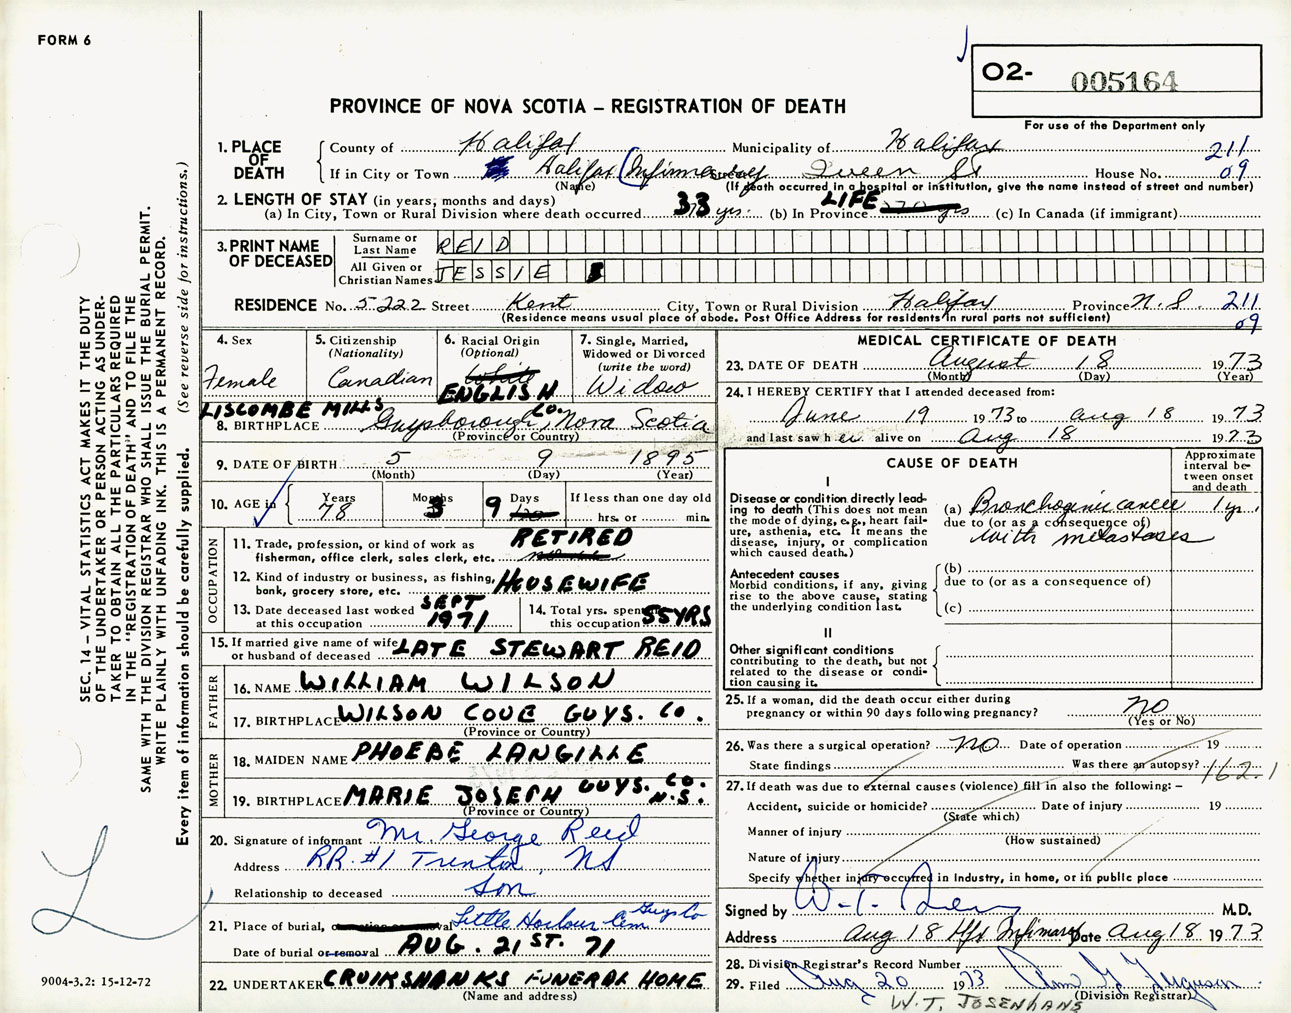 FORM 6
O2- 005164
For use of the Department only
PROVINCE OF NOVA SCOTIA – REGISTRATION OF DEATH
1. PLACE OF DEATH
County of Halifax Municipality of Halifax 211
If in City or Town Halifax (Infirmary Street Queen St House No. 09
(Name) (If death occurred in a hospital or institution, give the name instead of street and number)
2. LENGTH OF STAY (in years, months and days)
(a) In City, Town or Rural Division where death occurred 33 yrs. (b) In Province LIFE (c) In Canada (if immigrant)
3. PRINT NAME OF DECEASED
Surname or Last Name REID
All Given or Christian Names JESSIE
RESIDENCE No. 5222 Street Kent City, Town or Rural Division Halifax Province N.S. 211
(Residence means usual place of abode. Post Office Address for residents in rural parts not sufficient) 09
4. Sex Female
5. Citizenship (Nationality) Canadian
6. Racial Origin (Optional) White ENGLISH
7. Single, Married, Widowed or Divorced (write the word) Widow
LISCOMBE MILLS
8. BIRTHPLACE Guysborough Co., Nova Scotia
(Province or Country)
9. DATE OF BIRTH 5 9 1895
(Month) (Day) (Year)
10. AGE in Years 78 Months 3 Days 9 If less than one day old hrs. or min.
OCCUPATION
11. Trade, profession, or kind of work as fisherman, office clerk, sales clerk, etc. RETIRED
12. Kind of industry or business, as fishing, bank, grocery store, etc. HOUSEWIFE
13. Date deceased last worked at this occupation SEPT 1971
14. Total yrs. spent this occupation 55 YRS
15. If married give name of wife or husband of deceased LATE STEWART REID
FATHER
16. NAME WILLIAM WILSON
17. BIRTHPLACE WILSON COVE GUYS. CO.
(Province or Country)
MOTHER
18. MAIDEN NAME PHOEBE LANGILLE
19. BIRTHPLACE MARIE JOSEPH GUYS. CO. N.S.
(Province or Country)
20. Signature of informant Mr. George Reid
Address RR #1 Trenton, NS
Relationship to deceased Son
21. Place of burial, Little Harbour Cem Guys Co
Date of burial or removal AUG. 21ST. 71
22. UNDERTAKER CRUIKSHANKS FUNERAL HOME
(Name and address)
MEDICAL CERTIFICATE OF DEATH
23. DATE OF DEATH August 18 1973
(Month) (Day) (Year)
24. I HEREBY CERTIFY that I attended deceased from:
June 19 1973 to Aug 18 1973
and last saw her alive on Aug 18 1973
CAUSE OF DEATH
Approximate interval between onset and death
I
Disease or condition directly leading to death (This does not mean the mode of dying, e.g., heart failure, asthenia, etc. It means the disease, injury, or complication which caused death.)
(a) Bronchogenic cancer 1 yr.
due to (or as a consequence of)
with metastases
Antecedent causes
Morbid conditions, if any, giving rise to the above cause, stating the underlying condition last.
(b)
due to (or as a consequence of)
(c)
II
Other significant conditions contributing to the death, but not related to the disease or condition causing it.
25. If a woman, did the death occur either during pregnancy or within 90 days following pregnancy? No
(Yes or No)
26. Was there a surgical operation? No Date of operation 19
State findings Was there an autopsy? 162.1
27. If death was due to external causes (violence) fill in also the following: –
Accident, suicide or homicide? Date of injury 19
(State which)
Manner of injury
(How sustained)
Nature of injury
Specify whether injury occurred in Industry, in home, or in public place
Signed by M.D.
Address Aug 18 Hfx Infirmary Date Aug 18 1973
28. Division Registrar's Record Number
29. Filed Aug 20 1973
(Division Registrar)
W.T. JOSENHANS
SEC. 14 – VITAL STATISTICS ACT MAKES IT THE DUTY
OF THE UNDERTAKER OR PERSON ACTING AS UNDER-
TAKER TO OBTAIN ALL THE PARTICULARS REQUIRED
IN THE "REGISTRATION OF DEATH" AND TO FILE THE
SAME WITH THE DIVISION REGISTRAR WHO SHALL ISSUE THE BURIAL PERMIT.
WRITE PLAINLY WITH UNFADING INK. THIS IS A PERMANENT RECORD.
Every item of information should be carefully supplied. (See reverse side for instructions.)
9004-3.2: 15-12-72